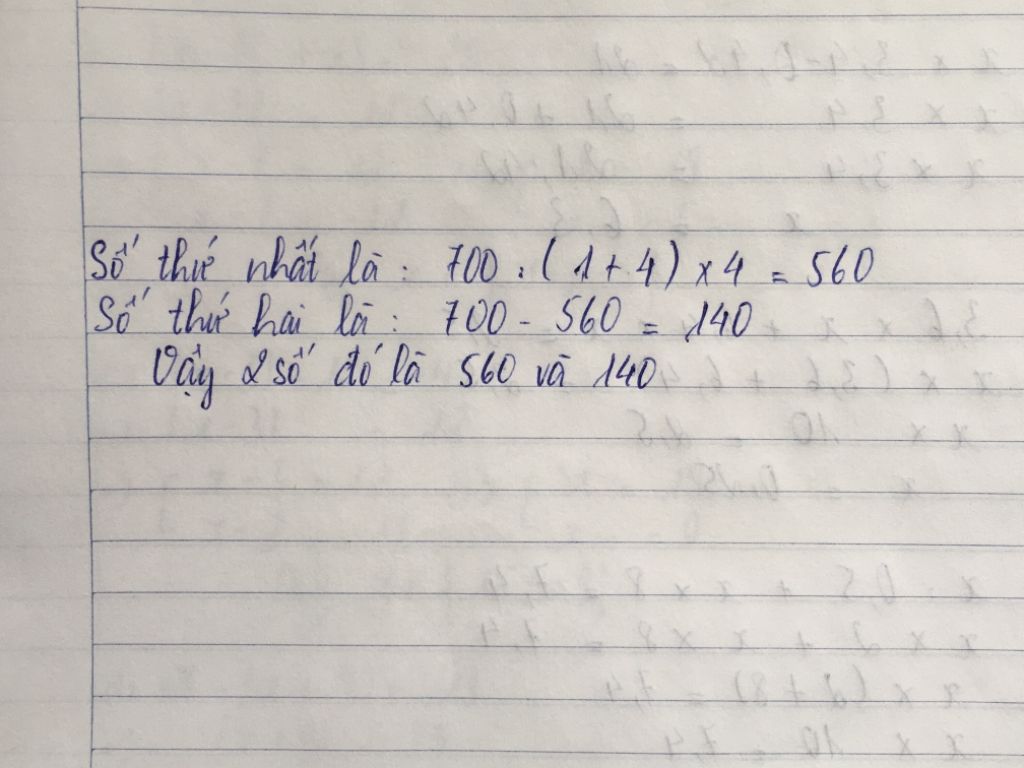 Số thứ nhất là : 700 : ( 1 + 4 ) x 4 = 560
Số thứ hai là : 700 - 560 = 140
Vậy 2 số đó là 560 và 140